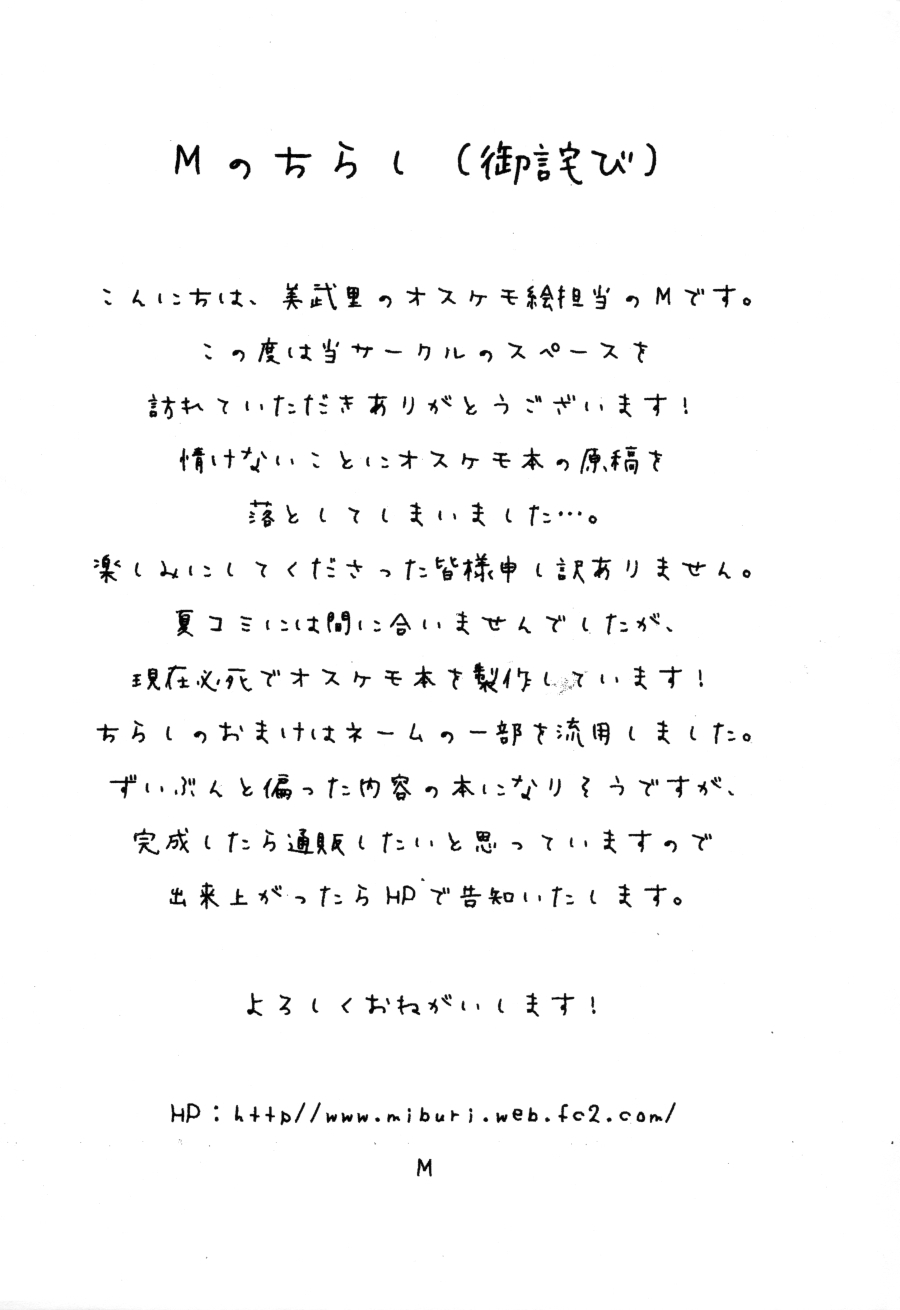 Mのちらし（御詫び）
こんにちは、美武里のオスケモ絵担当のMです。
この度は当サークルのスペースを
訪れていただきありがとうございます!
情けないことにオスケモ本の原稿を
落としてしまいました…。
楽しみにしてくださった皆様申し訳ありません。
夏コミには間に合いませんでしたが、
現在必死でオスケモ本を製作しています!
ちらしのおまけはネームの一部を流用しました。
ずいぶんと偏った内容の本になりそうですが、
完成したら通販したいと思っていますので
出来上がったらHPで告知いたします。
よろしくおねがいします!
HP：http//www.miburi.web.fc2.com/
M